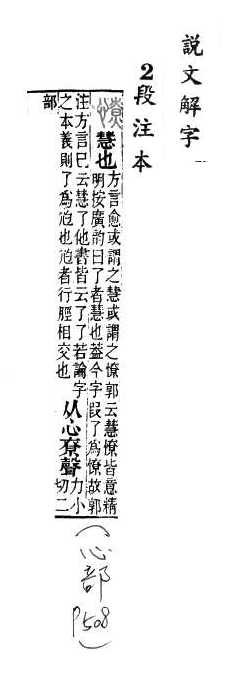 說文解字
2段注本
憭 慧也
方言愈或謂之慧或謂之憭郭云慧憭皆意精
明按廣韵曰了者慧也葢今字叚了為憭故郭
注方言巳云慧了他書皆云了了若論字
之本義則了為尥也尥者行脛相交也
从心尞聲
力小
切二
部
(心部 P508)